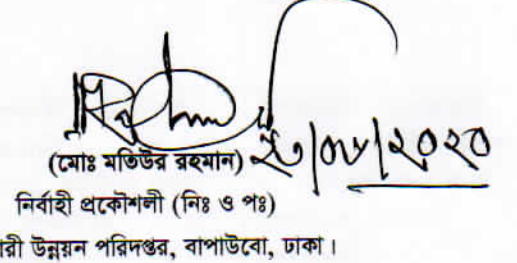 (মোঃ মতিউর রহমান)
নির্বাহী প্রকৌশলী (নিঃ ও পঃ)
রী উন্নয়ন পরিদপ্তর, বাপাউবো, ঢাকা।